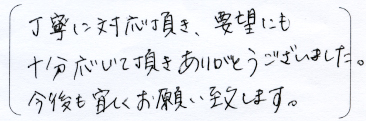 丁寧に対応頂き、要望にも
十分応じて頂きありがとうございました。
今後も宜しくお願い致します。